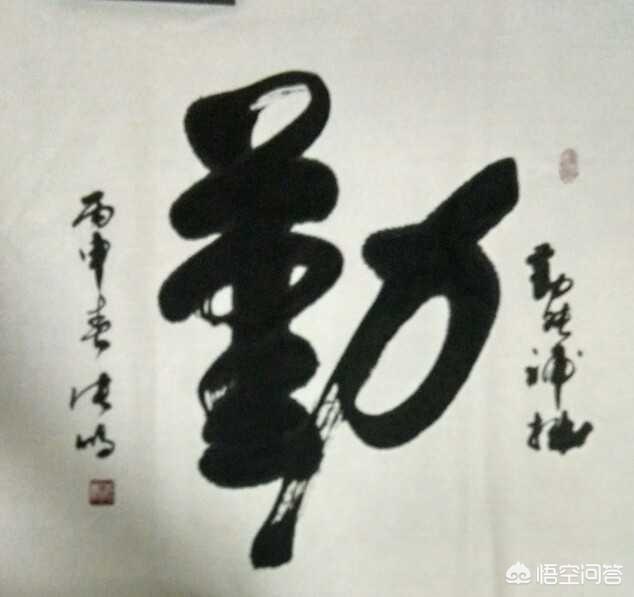 勤能補拙
勤
丙申春
悟空问答